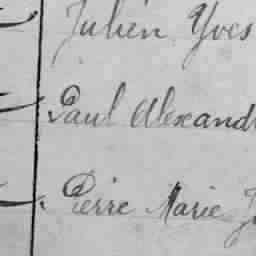 Julien Yves
Paul Alexand
Pierre Marie J